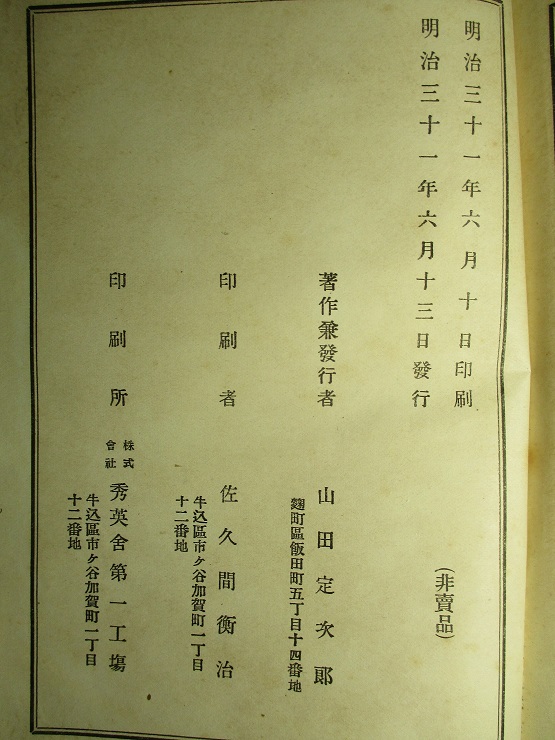 明治三十一年六月十日印刷
明治三十一年六月十三日發行
(非賣品)
著作兼發行者
山田定次郎
麴町區飯田町五丁目十四番地
印刷者
佐久間衡治
牛込區市ケ谷加賀町一丁目
十二番地
印刷所
株式
會社
秀英舍第一工塲
牛込區市ケ谷加賀町一丁目
十二番地